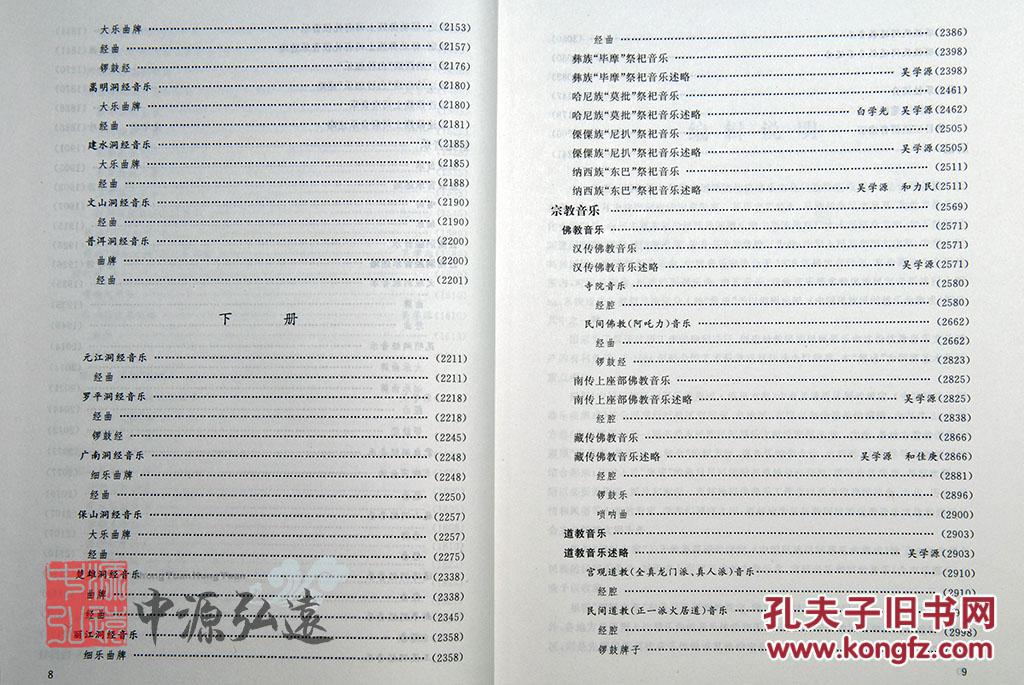 大乐曲牌 (2153)
经曲 (2157)
锣鼓经 (2176)
嵩明洞经音乐 (2180)
大乐曲牌 (2180)
经曲 (2181)
建水洞经音乐 (2185)
大乐曲牌 (2185)
经曲 (2188)
文山洞经音乐 (2190)
经曲 (2190)
普洱洞经音乐 (2200)
曲牌 (2200)
经曲 (2201)
下 册
元江洞经音乐 (2211)
经曲 (2211)
罗平洞经音乐 (2218)
经曲 (2218)
锣鼓经 (2245)
广南洞经音乐 (2248)
细乐曲牌 (2248)
经曲 (2250)
保山洞经音乐 (2257)
大乐曲牌 (2257)
经曲 (2275)
楚雄洞经音乐 (2338)
曲牌 (2338)
经曲 (2345)
丽江洞经音乐 (2358)
细乐曲牌 (2358)
8
经曲 (2386)
彝族“毕摩”祭祀音乐 (2398)
彝族“毕摩”祭祀音乐述略 吴学源(2398)
哈尼族“莫批”祭祀音乐 (2461)
哈尼族“莫批”祭祀音乐述略 白学光 吴学源(2462)
傈僳族“尼扒”祭祀音乐 (2505)
傈僳族“尼扒”祭祀音乐述略 吴学源(2505)
纳西族“东巴”祭祀音乐 (2511)
纳西族“东巴”祭祀音乐述略 吴学源 和力民(2511)
宗教音乐 (2569)
佛教音乐 (2571)
汉传佛教音乐 (2571)
汉传佛教音乐述略 吴学源(2571)
寺院音乐 (2580)
经腔 (2580)
民间佛教(阿吒力)音乐 (2662)
经曲 (2662)
锣鼓经 (2823)
南传上座部佛教音乐 (2825)
南传上座部佛教音乐述略 吴学源(2825)
经腔 (2838)
藏传佛教音乐 (2866)
藏传佛教音乐述略 吴学源 和佳庚(2866)
经腔 (2881)
锣鼓乐 (2896)
唢呐曲 (2900)
道教音乐 (2903)
道教音乐述略 吴学源(2903)
宫观道教(全真龙门派、真人派)音乐 (2910)
经腔 (2910)
民间道教(正一派火居道)音乐
经腔 (2998)
锣鼓牌子
9
中源弘远
孔夫子旧书网
www.kongfz.com